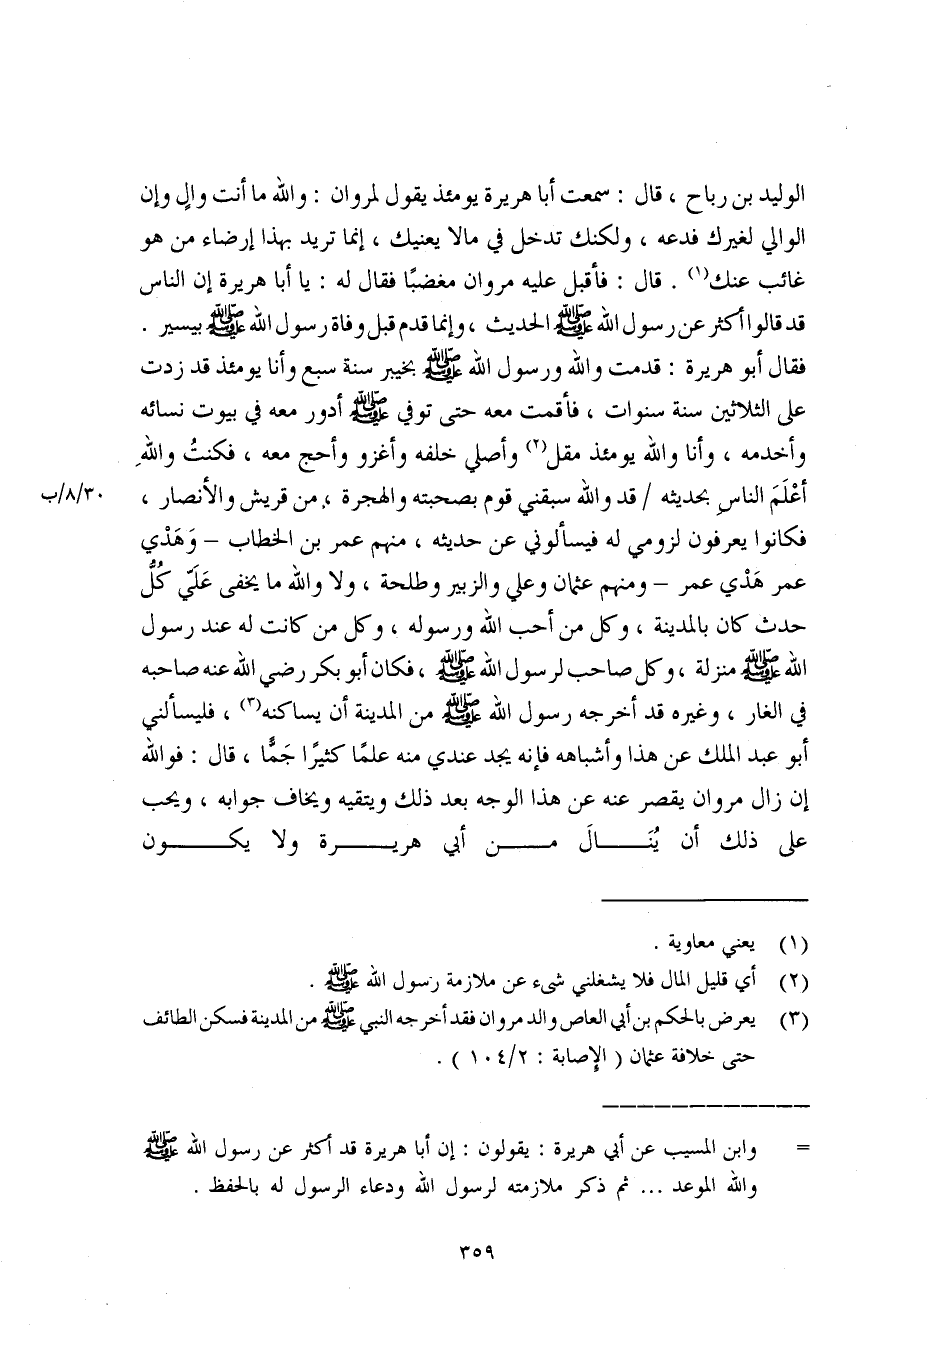 الوليد بن رباح ، قال : سمعت أبا هريرة يومئذ يقول لمروان : والله ما أنت والٍ وإن
الوالي لغيرك فدعه ، ولكنك تدخل في مالا يعنيك ، إنما تريد بهذا إرضاء من هو
غائب عنك(١) . قال : فأقبل عليه مروان مغضبًا فقال له : يا أبا هريرة إن الناس
قد قالوا أكثر عن رسول الله ﷺ الحديث ، وإنما قدم قبل وفاة رسول الله ﷺ بيسير .
فقال أبو هريرة : قدمت والله ورسول الله ﷺ بخيبر سنة سبع وأنا يومئذ قد زدت
على الثلاثين سنة سنوات ، فأقمت معه حتى توفي ﷺ أدور معه في بيوت نسائه
وأخدمه ، وأنا والله يومئذ مقل(٢) وأصلي خلفه وأغزو وأحج معه ، فكنتُ واللهِ
أعْلَمَ الناسِ بحديثه / قد والله سبقني قوم بصحبته والهجرة ، من قريش والأنصار ،
٨/٣٠/ب
فكانوا يعرفون لزومي له فيسألوني عن حديثه ، منهم عمر بن الخطاب – وَهَذْي
عمر هَذْي عمر – ومنهم عثمان وعلي والزبير وطلحة ، ولا والله ما يخفى عَلَيّ كُلُّ
حدث كان بالمدينة ، وكل من أحب الله ورسوله ، وكل من كانت له عند رسول
الله ﷺ منزلة ، وكل صاحب لرسول الله ﷺ ، فكان أبو بكر رضي الله عنه صاحبه
في الغار ، وغيره قد أخرجه رسول الله ﷺ من المدينة أن يساكنه(٣) ، فليسألني
أبو عبد الملك عن هذا وأشباهه فإنه يجد عندي منه علمًا كثيرًا جَمًّا ، قال : فوالله
إن زال مروان يقصر عنه عن هذا الوجه بعد ذلك ويتقيه ويخاف جوابه ، ويحب
على ذلك أن يُنَالَ من أبي هريرة ولا يكون
(١) يعني معاوية .
(٢) أي قليل المال فلا يشغلني شىء عن ملازمة رسول الله ﷺ .
(٣) يعرض بالحكم بن أبي العاص والد مروان فقد أخرجه النبي ﷺ من المدينة فسكن الطائف
حتى خلافة عثمان ( الإصابة : ١٠٤/٢ ) .
= وابن المسيب عن أبي هريرة : يقولون : إن أبا هريرة قد أكثر عن رسول الله ﷺ
والله الموعد ... ثم ذكر ملازمته لرسول الله ودعاء الرسول له بالحفظ .
٣٥٩